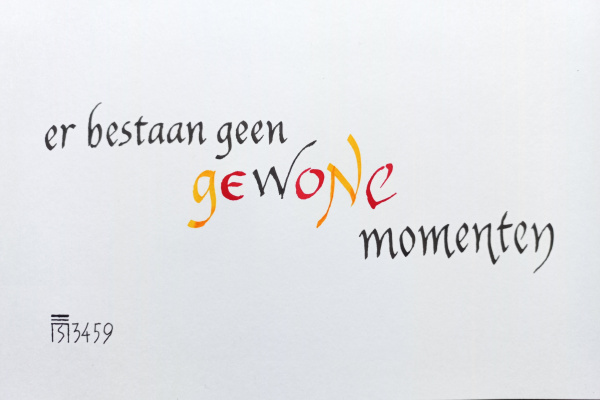 er bestaan geen
gewone
momenten
3459